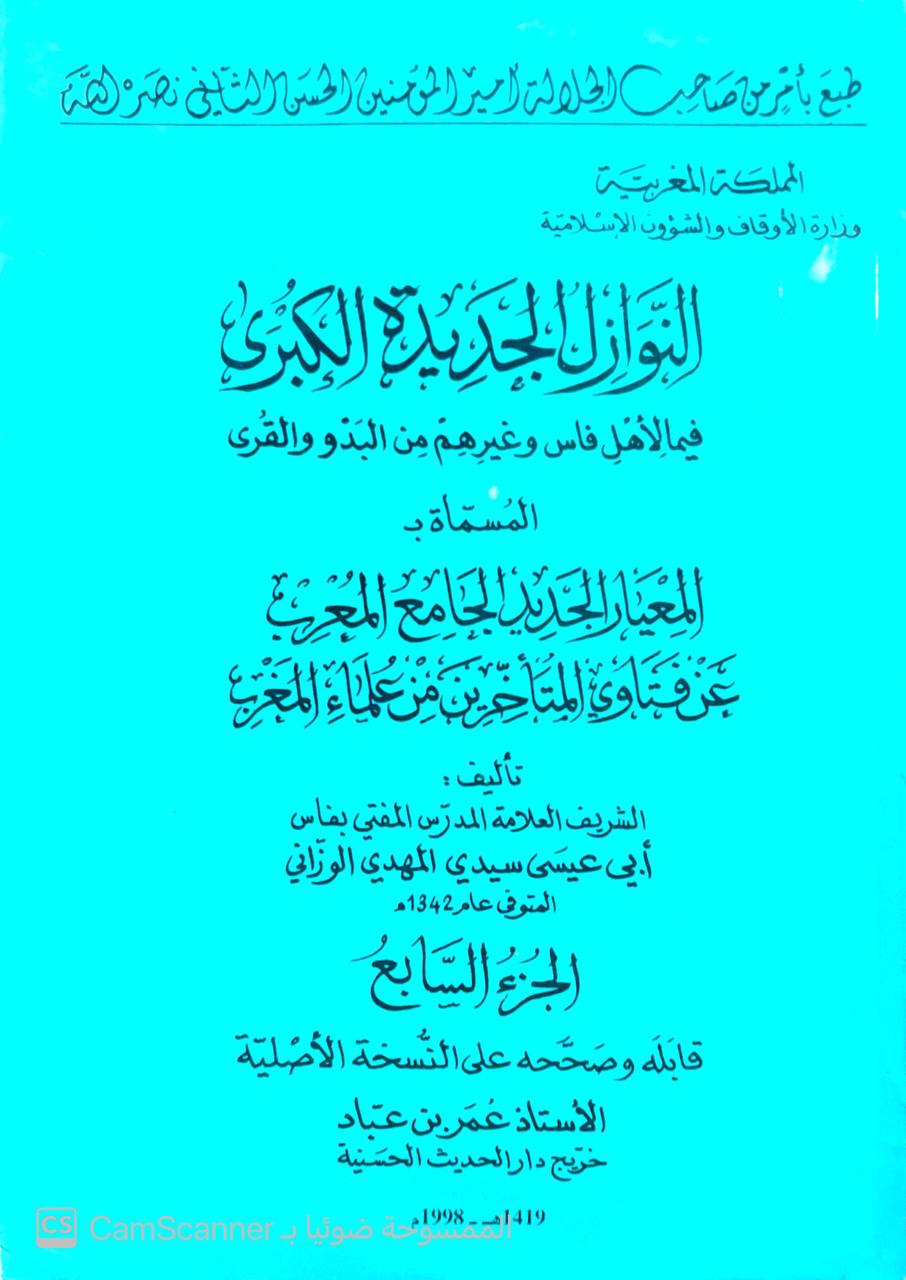 طبع بأمر من صاحب الجلالة أمير المؤمنين الحسن الثاني نصره الله
المملكة المغربية
وزارة الأوقاف والشؤون الإسلامية
النَّوَازِل الجَدِيدَة الكُبْرَى
فيما لأهْلِ فاس وغيرِهِمْ مِن البَدْو والقُرى
المُسمّاة بـ
المِعْيَار الجَدِيد الجَامِع المُعْرِب
عَنْ فَتَاوِي المُتَأخِّرِينَ مِنْ عُلَمَاءِ المَغْرِبِ
تأليف :
الشريف العلامة المدرّس المفتي بفاس
أبي عيسَى سيدي المهدي الوزّاني
المتوفى عام 1342هـ
الجُزءُ السَّابعُ
قابَلَه وصَحَّحه على النُّسخة الأصْليّة
الأستاذ عُمَر بن عبّاد
خرّيج دار الحديث الحسَنية
1419هـ - 1998م
CS CamScanner الممسوحة ضوئيا بـ